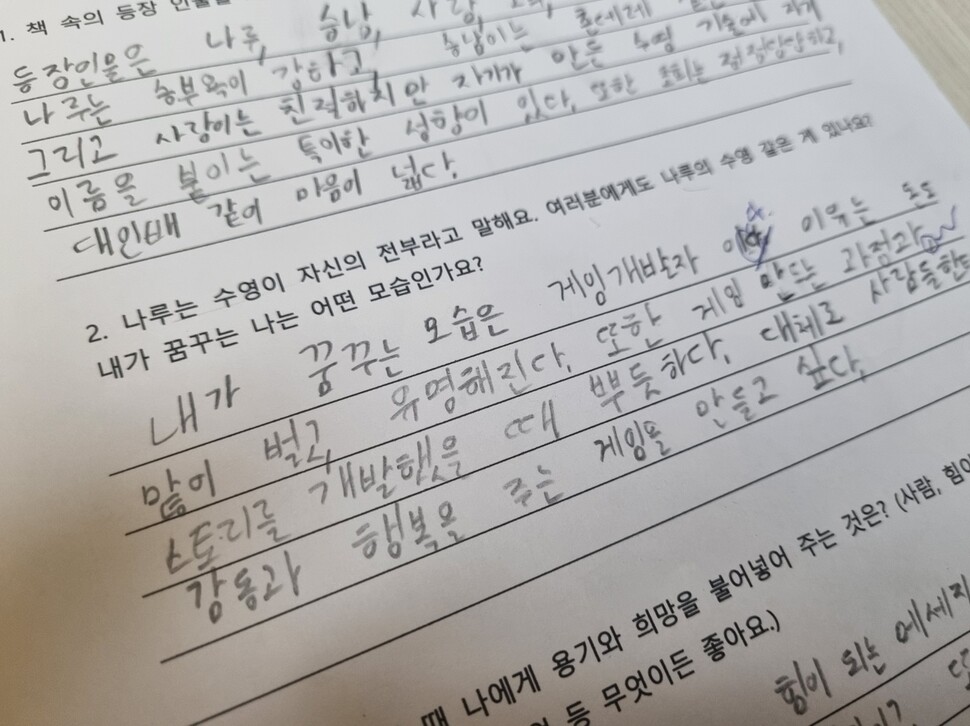 1. 책 속의 등장 인물들
등장인물은 나루, 승남, 사랑,
나루는 승부욕이 강하고, 승남이는
그리고 사랑이는 친절하지만 자기가 만든 수영 기술에 자기
이름을 붙이는 특이한 성향이 있다. 또한 초희는 정정당당하고,
대인배 같이 마음이 넓다.
2. 나루는 수영이 자신의 전부라고 말해요. 여러분에게도 나루의 수영 같은 게 있나요?
내가 꿈꾸는 나는 어떤 모습인가요?
내가 꿈꾸는 모습은 게임개발자 이다 이유는 돈도
많이 벌고, 유명해진다. 또한 게임 만드는 과정과
스토리를 개발했을 때 뿌듯하다. 대체로 사람들한테
감동과 행복을 주는 게임을 만들고 싶다.
때 나에게 용기와 희망을 불어넣어 주는 것은? (사람, 힘이
등 무엇이든 좋아요.)
힘이 되는 에세지